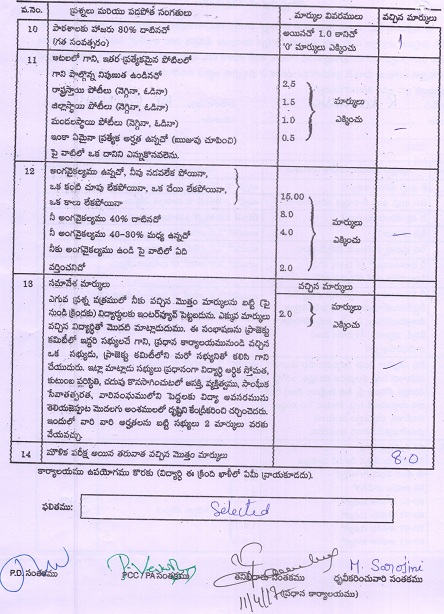 వ.నెం. ప్రశ్నలు మరియు పడపోత సంగతులు మార్కుల వివరములు వచ్చిన మార్కులు
10 పాఠశాలకు హాజరు 80% దాటినచో అయినచో 1.0 కానిచో 1
(గత సంవత్సరం) '0' మార్కులు ఎక్కించు
11 ఆటలలో గాని, ఇతర ప్రత్యేకమైన పోటీలలో
గాని పాల్గొన్న నిపుణుత ఉండినచో
రాష్ట్రస్థాయి పోటీలు (నెగ్గినా, ఓడినా) 2.5
జిల్లాస్థాయి పోటీలు (నెగ్గినా, ఓడినా) 1.5 మార్కులు
మండలస్థాయి పోటీలు (నెగ్గినా, ఓడినా) 1.0 ఎక్కించు
ఇంకా ఏమైనా ప్రత్యేక అర్హత ఉన్నచో (ఋజువు చూపించి) 0.5
పై వాటిలో ఒక దానిని ఎన్నుకొనవలెను.
12 అంగవైకల్యము ఉన్నచో, నీవు నడవలేక పోయినా,
ఒక కంటి చూపు లేకపోయినా, ఒక చేయి లేకపోయినా,
ఒక కాలు లేకపోయినా 15.00
నీ అంగవైకల్యము 40% దాటినచో 8.0 మార్కులు
నీ అంగవైకల్యము 40-30% మధ్య ఉన్నచో 4.0 ఎక్కించు
నీకు అంగవైకల్యము ఉండి పై వాటిలో ఏది
వర్తించనిచో 2.0
13 సమావేశ మార్కులు వచ్చిన మార్కులు
ఎగువ ప్రశ్న పత్రములో నీకు వచ్చిన మొత్తం మార్కులను బట్టి (పై
నుండి క్రిందకు) విద్యార్థులకు ఇంటర్వ్యూవ్ పెట్టబడును. ఎక్కువ మార్కులు 2.0 మార్కులు
వచ్చిన విద్యార్థితో మొదటి మాట్లాడుదుము. ఈ సంభాషణను ప్రాజెక్టు ఎక్కించు
కమిటీలో ఇద్దరి సభ్యులచే గాని, ప్రధాన కార్యాలయమునుండి వచ్చిన
ఒక సభ్యుడు, ప్రాజెక్టు కమిటీలోని మరో సభ్యునితో కలిసి గాని
చేయుదురు. ఇట్లా మాట్లాడు సభ్యులు ప్రధానంగా విద్యార్థి ఆర్థిక స్తోమత,
కుటుంబ పరిస్థితి, చదువు కొనసాగించుటలో ఆసక్తి, వ్యక్తిత్వము, సాంఘీక
సేవాతత్పరత, వారినసంఘములోని పెద్దలకు విద్యా అవసరమును
తెలియజెప్పుట మొదలగు అంశములలో దృష్టిని కేంద్రీకరించి చర్చించెదరు.
ఇందులో వారి వారి అర్హతలను బట్టి సభ్యులు 2 మార్కులు వరకు
వేయవచ్చు.
14 మౌళిక పరీక్ష అయిన తరువాత వచ్చిన మొత్తం మార్కులు 8.0
కార్యాలయము ఉపయోగము కొరకు (విద్యార్థి ఈ క్రింది ఖాళీలో ఏమీ వ్రాయకూడదు).
ఫలితము: Selected
M. Sarojini
P.D. సంతకము PCC / PA సంతకము తనిఖీదారు సంతకము ధృవీకరించువారి సంతకము
11/4/17 (ప్రధాన కార్యాలయము)